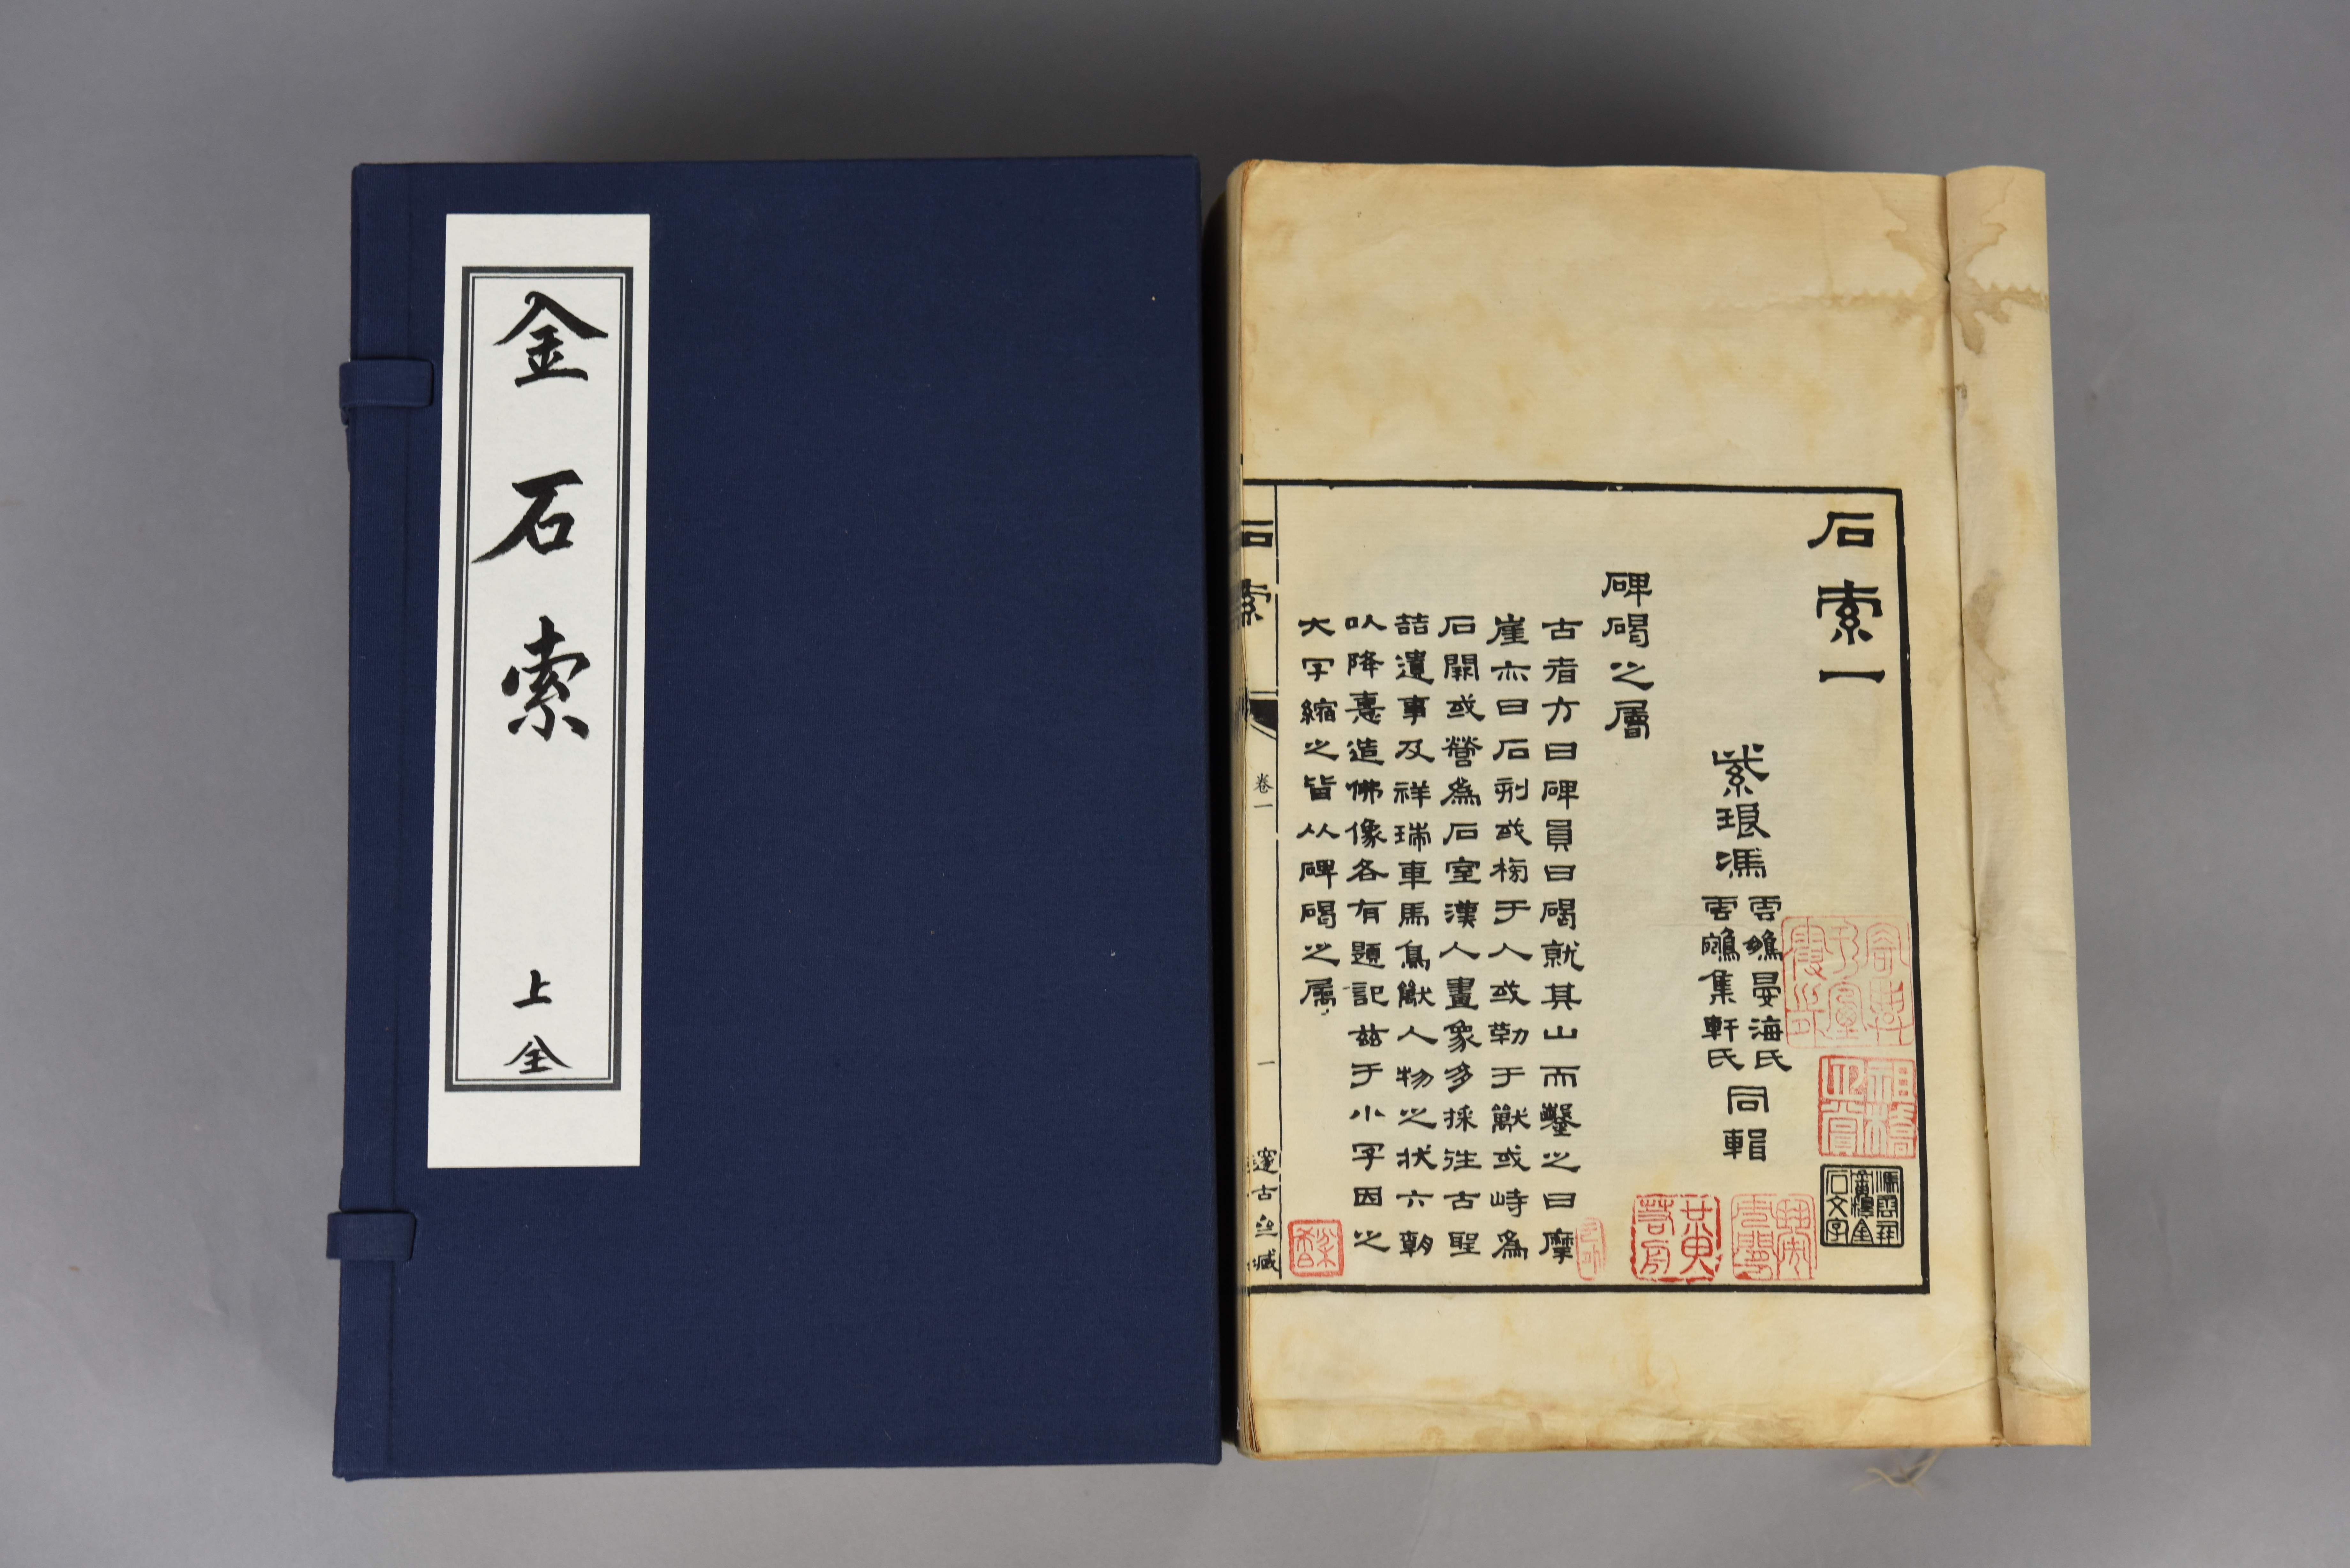 金石索
上函
石索一
紫琅馮
雲鵷晏海氏
雲鵷集軒氏
同輯
碑碣之屬
古者方曰碑員曰碣就其山而鑿之曰摩
崖亦曰石刻或榜于人或勒于獸或峙為
石闕或營為石室漢人畫象多採往古聖
喆遺事及祥瑞車馬鳥獸人物之狀六朝
以降憙造佛像各有題記茲于小字因之
大字縮之皆从碑碣之屬
石索
卷一
一
邃古㘴臧